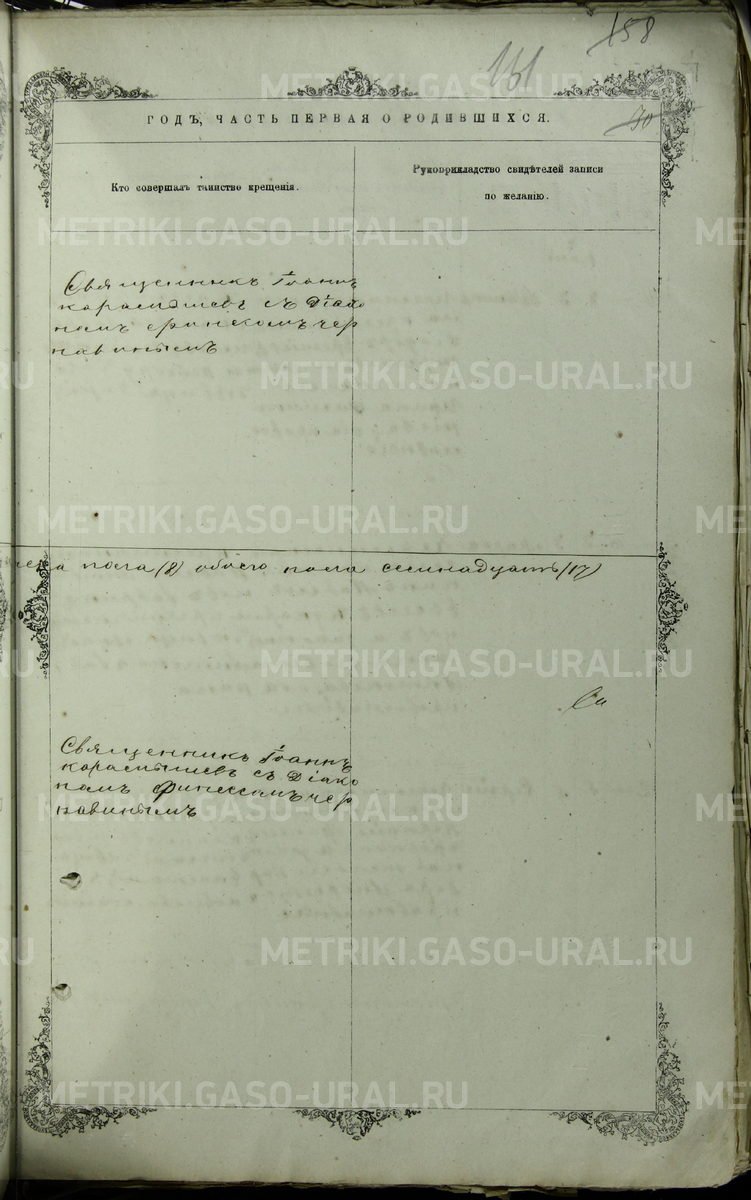 158
161
70
ГОДЪ, ЧАСТЬ ПЕРВАЯ О РОДИВШИХСЯ.
Кто совершалъ таинство крещенія.
Рукоприкладство свидѣтелей записи
по желанію.
Священникъ Іоаннъ
карасышевъ съ Діако
номъ финескомъ чер
навинымъ
пола (8) обоего пола семнадцать (17)
Священникъ Іоаннъ
карасышевъ съ Діако
номъ Финескомъ чер
навинымъ
METRIKI.GASO-URAL.RU